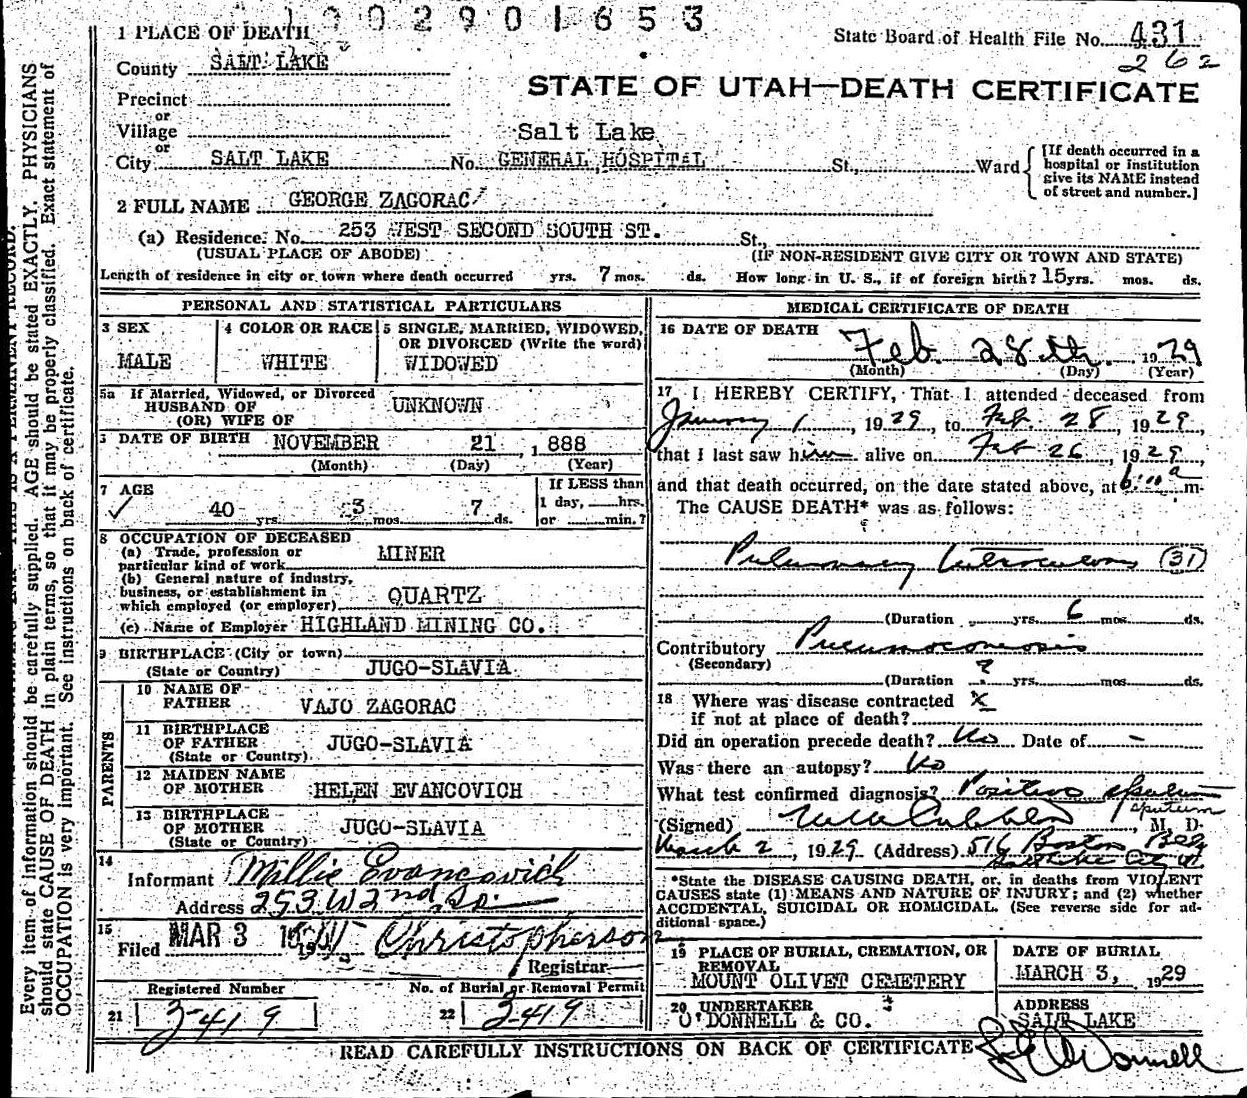 1902901653
1 PLACE OF DEATH
State Board of Health File No. 431
262
County SALT LAKE
STATE OF UTAH—DEATH CERTIFICATE
Precinct
or
Village
or
City SALT LAKE No. Salt Lake GENERAL HOSPITAL St., Ward
[If death occurred in a hospital or institution give its NAME instead of street and number.]
2 FULL NAME GEORGE ZAGORAC
(a) Residence. No. 253 WEST SECOND SOUTH ST. St.,
(USUAL PLACE OF ABODE) (IF NON-RESIDENT GIVE CITY OR TOWN AND STATE)
Length of residence in city or town where death occurred yrs. 7 mos. ds. How long in U. S., if of foreign birth? 15 yrs. mos. ds.
PERSONAL AND STATISTICAL PARTICULARS
3 SEX
MALE
4 COLOR OR RACE
WHITE
5 SINGLE, MARRIED, WIDOWED, OR DIVORCED (Write the word)
WIDOWED
5a If Married, Widowed, or Divorced
HUSBAND OF
(OR) WIFE OF
UNKNOWN
DATE OF BIRTH NOVEMBER 21 , 1888
(Month) (Day) (Year)
7 AGE
40 yrs. 3 mos. 7 ds.
If LESS than
1 day, hrs.
or min.?
8 OCCUPATION OF DECEASED
(a) Trade, profession or
particular kind of work MINER
(b) General nature of industry,
business, or establishment in
which employed (or employer) QUARTZ
(c) Name of Employer HIGHLAND MINING CO.
9 BIRTHPLACE (City or town)
(State or Country) JUGO-SLAVIA
PARENTS
10 NAME OF
FATHER VAJO ZAGORAC
11 BIRTHPLACE
OF FATHER
(State or Country) JUGO-SLAVIA
12 MAIDEN NAME
OF MOTHER HELEN EVANCOVICH
13 BIRTHPLACE
OF MOTHER
(State or Country) JUGO-SLAVIA
14
Informant Millie Evancovich
Address 253 W 2nd So.
15
Filed MAR 3 Christopherson
Registrar
Registered Number
21 3419
No. of Burial or Removal Permit
22 3419
MEDICAL CERTIFICATE OF DEATH
16 DATE OF DEATH
Feb. 28th. 1929
(Month) (Day) (Year)
17 I HEREBY CERTIFY, That I attended deceased from
January 1, 1929, to Feb. 28 1929,
that I last saw him alive on Feb 26, 1929,
and that death occurred, on the date stated above, at m.
The CAUSE DEATH* was as follows:
Pulmonary tuberculosis (31)
(Duration yrs. 6 mos. ds.
Contributory Pneumoconiosis
(Secondary)
(Duration ? yrs. mos. ds.
18 Where was disease contracted
if not at place of death? x
Did an operation precede death? No Date of -
Was there an autopsy? No
What test confirmed diagnosis? Positive sputum
sputum
(Signed) , M. D.
March 2, 1929 (Address) 516 Boston Bldg
Salt Lake City Ut.
*State the DISEASE CAUSING DEATH, or, in deaths from VIOLENT
CAUSES state (1) MEANS AND NATURE OF INJURY; and (2) whether
ACCIDENTAL, SUICIDAL OR HOMICIDAL. (See reverse side for ad-
ditional space.)
19 PLACE OF BURIAL, CREMATION, OR
REMOVAL
MOUNT OLIVET CEMETERY
DATE OF BURIAL
MARCH 3, 1929
20 UNDERTAKER
O'DONNELL & CO.
ADDRESS
SALT LAKE
O'Donnell
READ CAREFULLY INSTRUCTIONS ON BACK OF CERTIFICATE
Every item of information should be carefully supplied. AGE should be stated EXACTLY. PHYSICIANS
should state CAUSE OF DEATH in plain terms, so that it may be properly classified. Exact statement of
OCCUPATION is very important. See instructions on back of certificate.